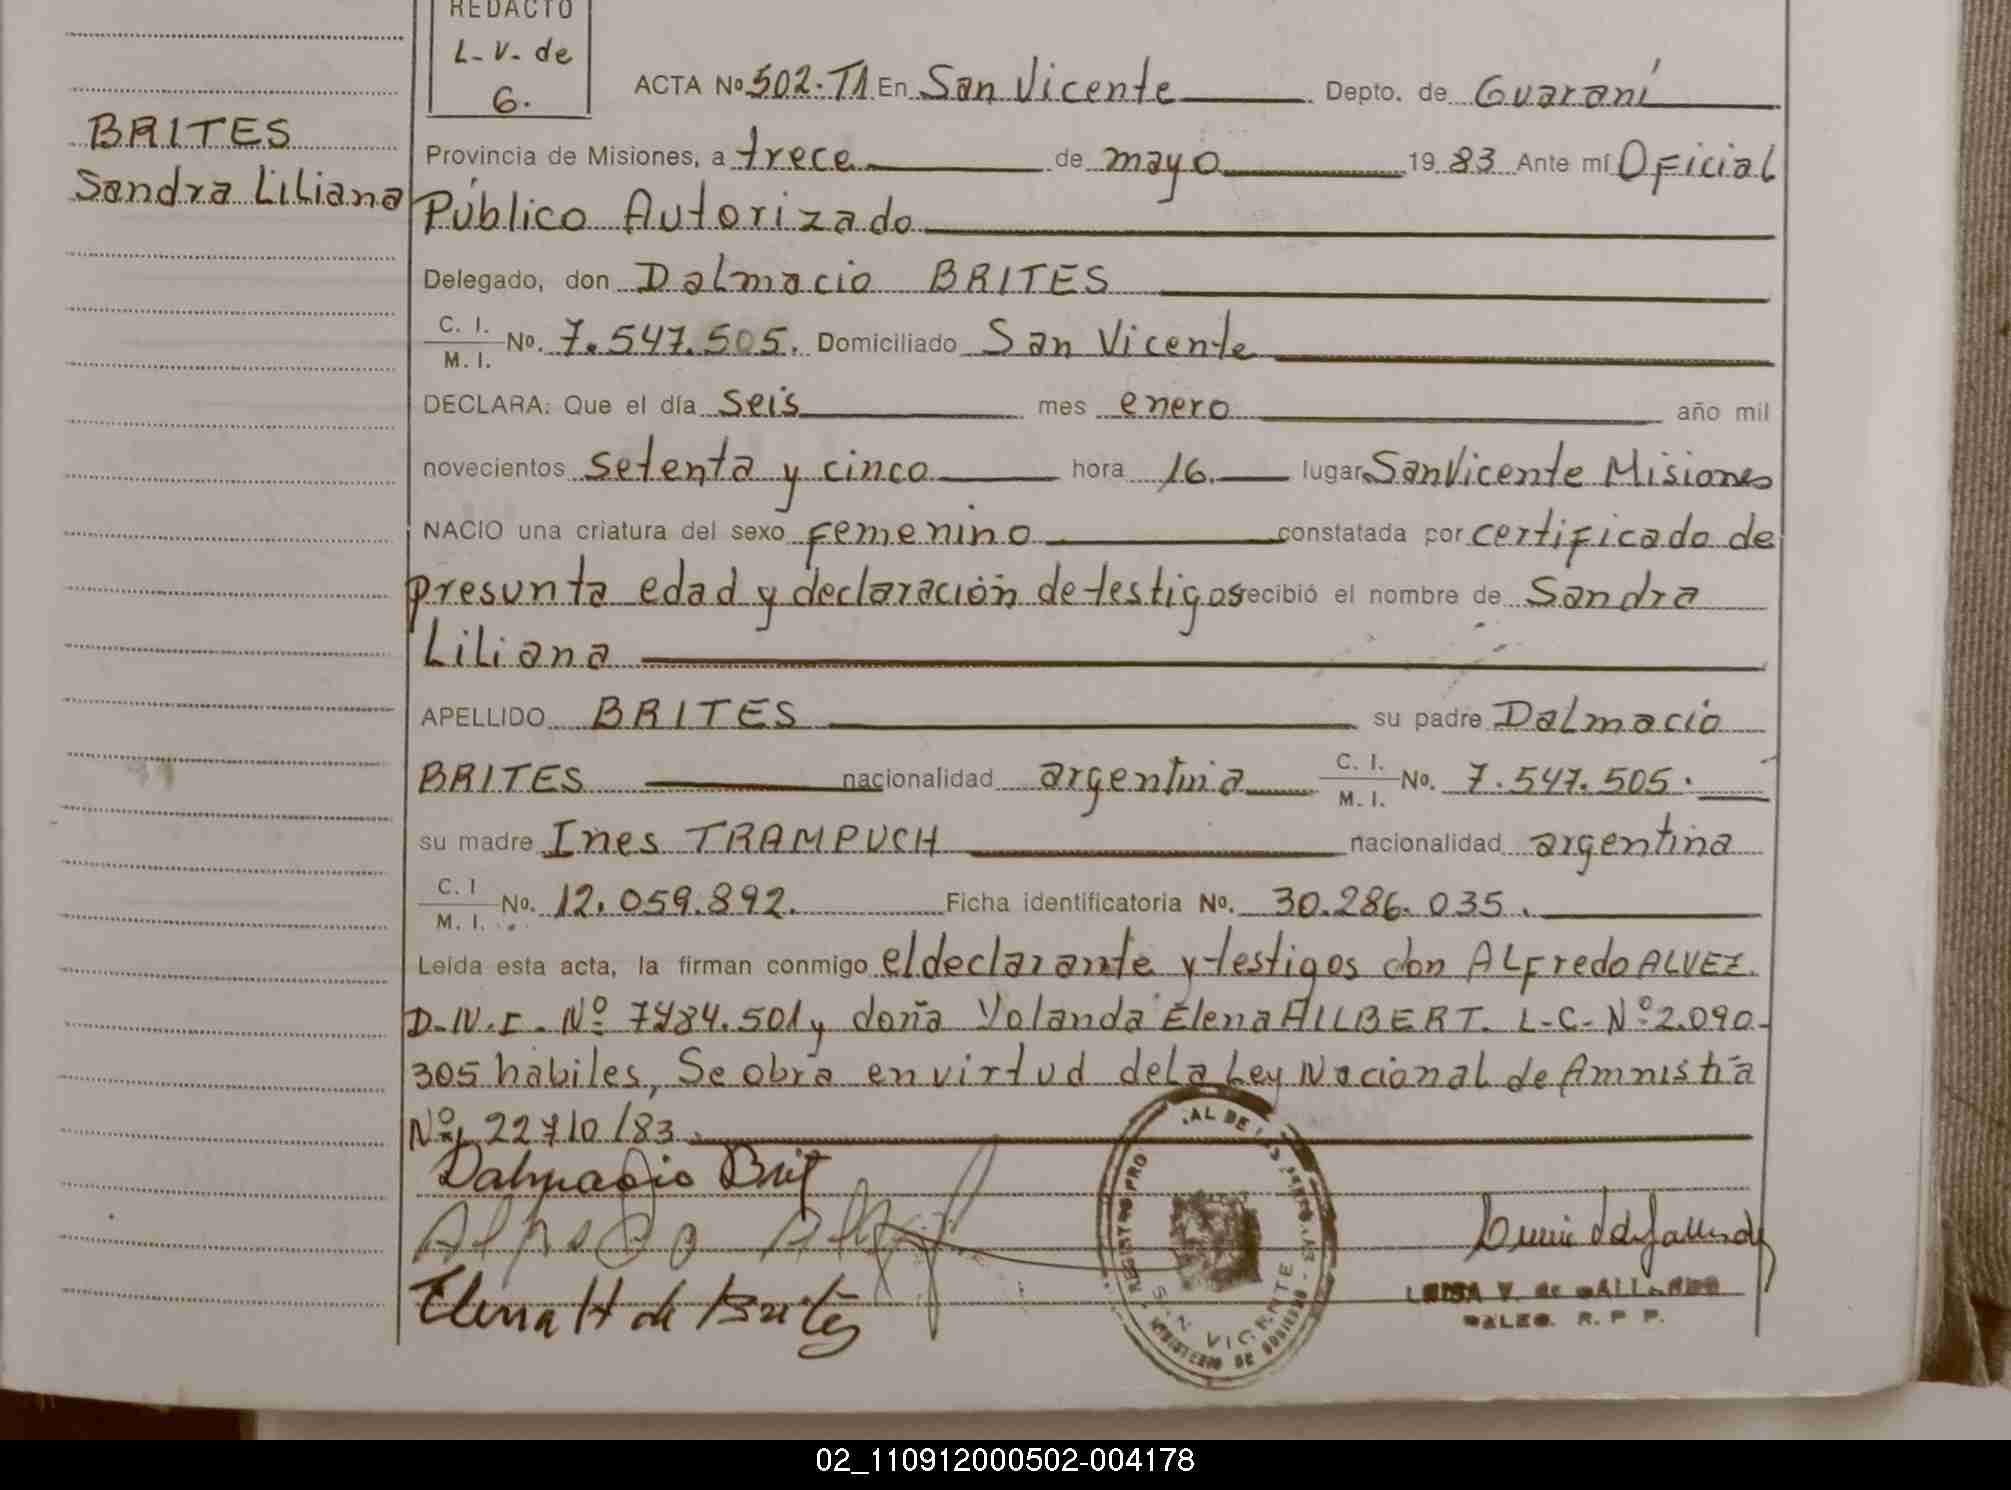 REDACTO
L-V- de
G.
BRITES
Sandra Liliana
ACTA No 502-T1 En San Vicente Depto. de Guaraní
Provincia de Misiones, a trece de mayo 19 83 Ante mí Oficial
Público Autorizado
Delegado, don Dalmacio BRITES
C. I.
M. I. No. 7.547.505. Domiciliado San Vicente
DECLARA: Que el día seis mes enero año mil
novecientos setenta y cinco hora 16. lugar San Vicente Misiones
NACIO una criatura del sexo femenino constatada por certificado de
presunta edad y declaración de testigos recibió el nombre de Sandra
Liliana
APELLIDO BRITES su padre Dalmacio
BRITES nacionalidad argentina C. I. M. I. No. 7.547.505.
su madre Ines TRAMPUCH nacionalidad argentina
C. I M. I. No. 12.059.892. Ficha identificatoria No. 30.286.035.
Leída esta acta, la firman conmigo el declarante y testigos don ALfredo ALVEZ.
Nº 7484.501 y doña Yolanda Elena L-C- Nº 2.090-
305 habiles, Se obra en virtud de la Ley Nacional de Amnistía
Nº 22710/83.
Dalmacio Brit
Elena H de Brites
SAN VICENTE
LUISA V. de GALLARDO
R. P P.
02_110912000502-004178